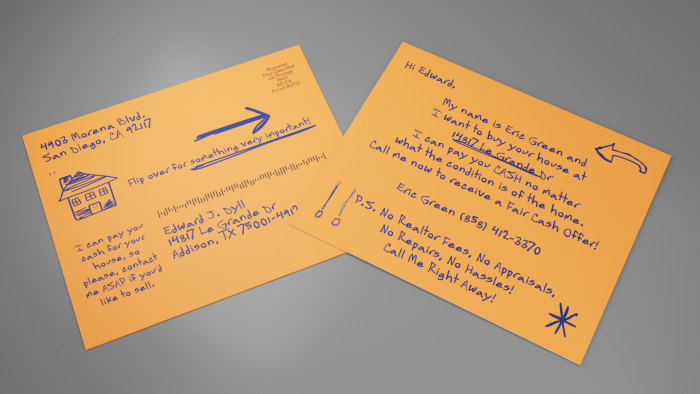 4903 Morena Blvd.
San Diego, CA 92117
Presorted
First Class Mail
US Postage
PAID
Flip over for something very important!
I can pay you
cash for your
house, so
please, contact
me ASAP if you'd
like to sell.
Edward J. Dyll
14817 Le Grande Dr
Addison, TX 75001-4911
Hi Edward,
My name is Eric Green and
I want to buy your house at
14817 Le Grande Dr
I can pay you CASH no matter
what the condition is of the home.
Call me now to receive a Fair Cash Offer!
Eric Green (858) 412-3370
P.S. No Realtor Fees, No Appraisals,
No Repairs, No Hassles!
Call Me Right Away!